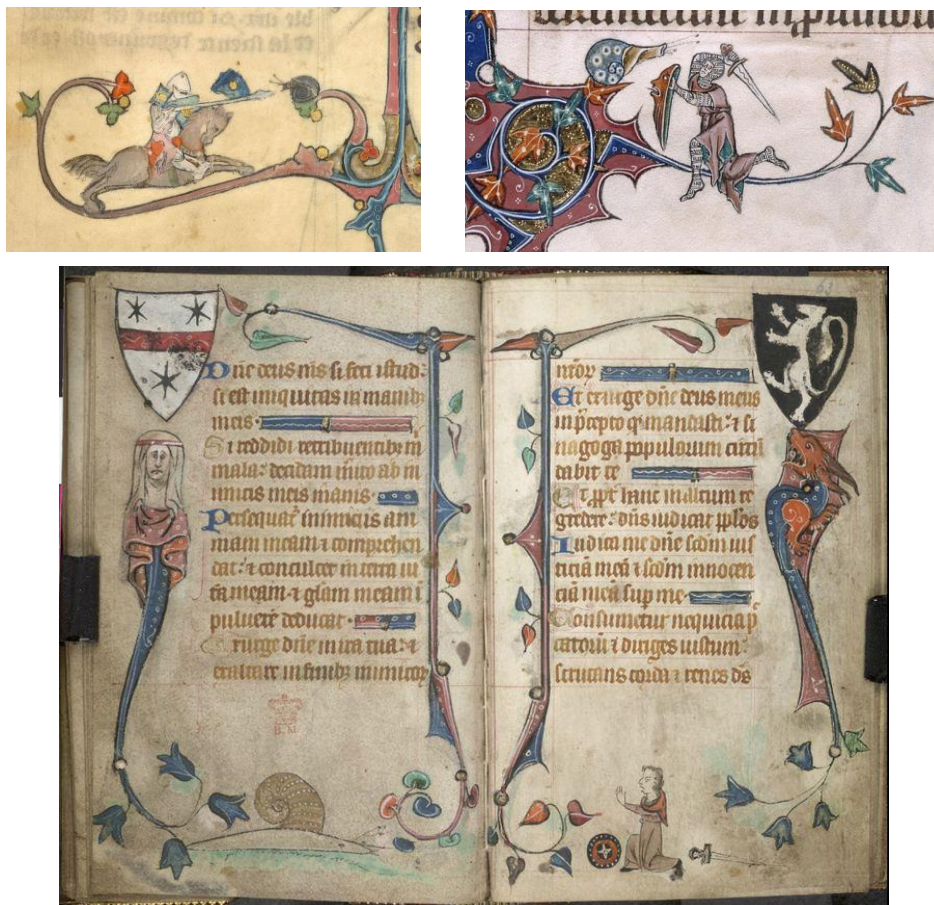 Dñe deus m̃s si feci istud:
si est iniquitas in manib᷒
meis
Si reddidi retribuentibꝰ m̃
mala: decidam m̃ito ab ini
micis meis inanis
Persequat᷑ inimicus ani
mam meam ⁊ comprehen
dat: ⁊ conculcet in terra ui
tã meam ⁊ glam meam i
puluerẽ deducat
Exurge dñe in ira tua: ⁊
exaltare in finibꝫ inimicorꝝ
63
Et exurge dñe deus meus
in p̃cepto qͦ mandasti: ⁊ si
nagoga populorum circũ
dabit te
Et ꝓpt̃ hanc in altum re
gredere: dñs iudicat pp̃los
Iudica me dñe scđm ius
ticiã meã ⁊ scđm innocen
ciã meã sup me
Consumetur nequicia p̃
catorũ ⁊ diriges iustum:
scrutans corda ⁊ renes ds̃